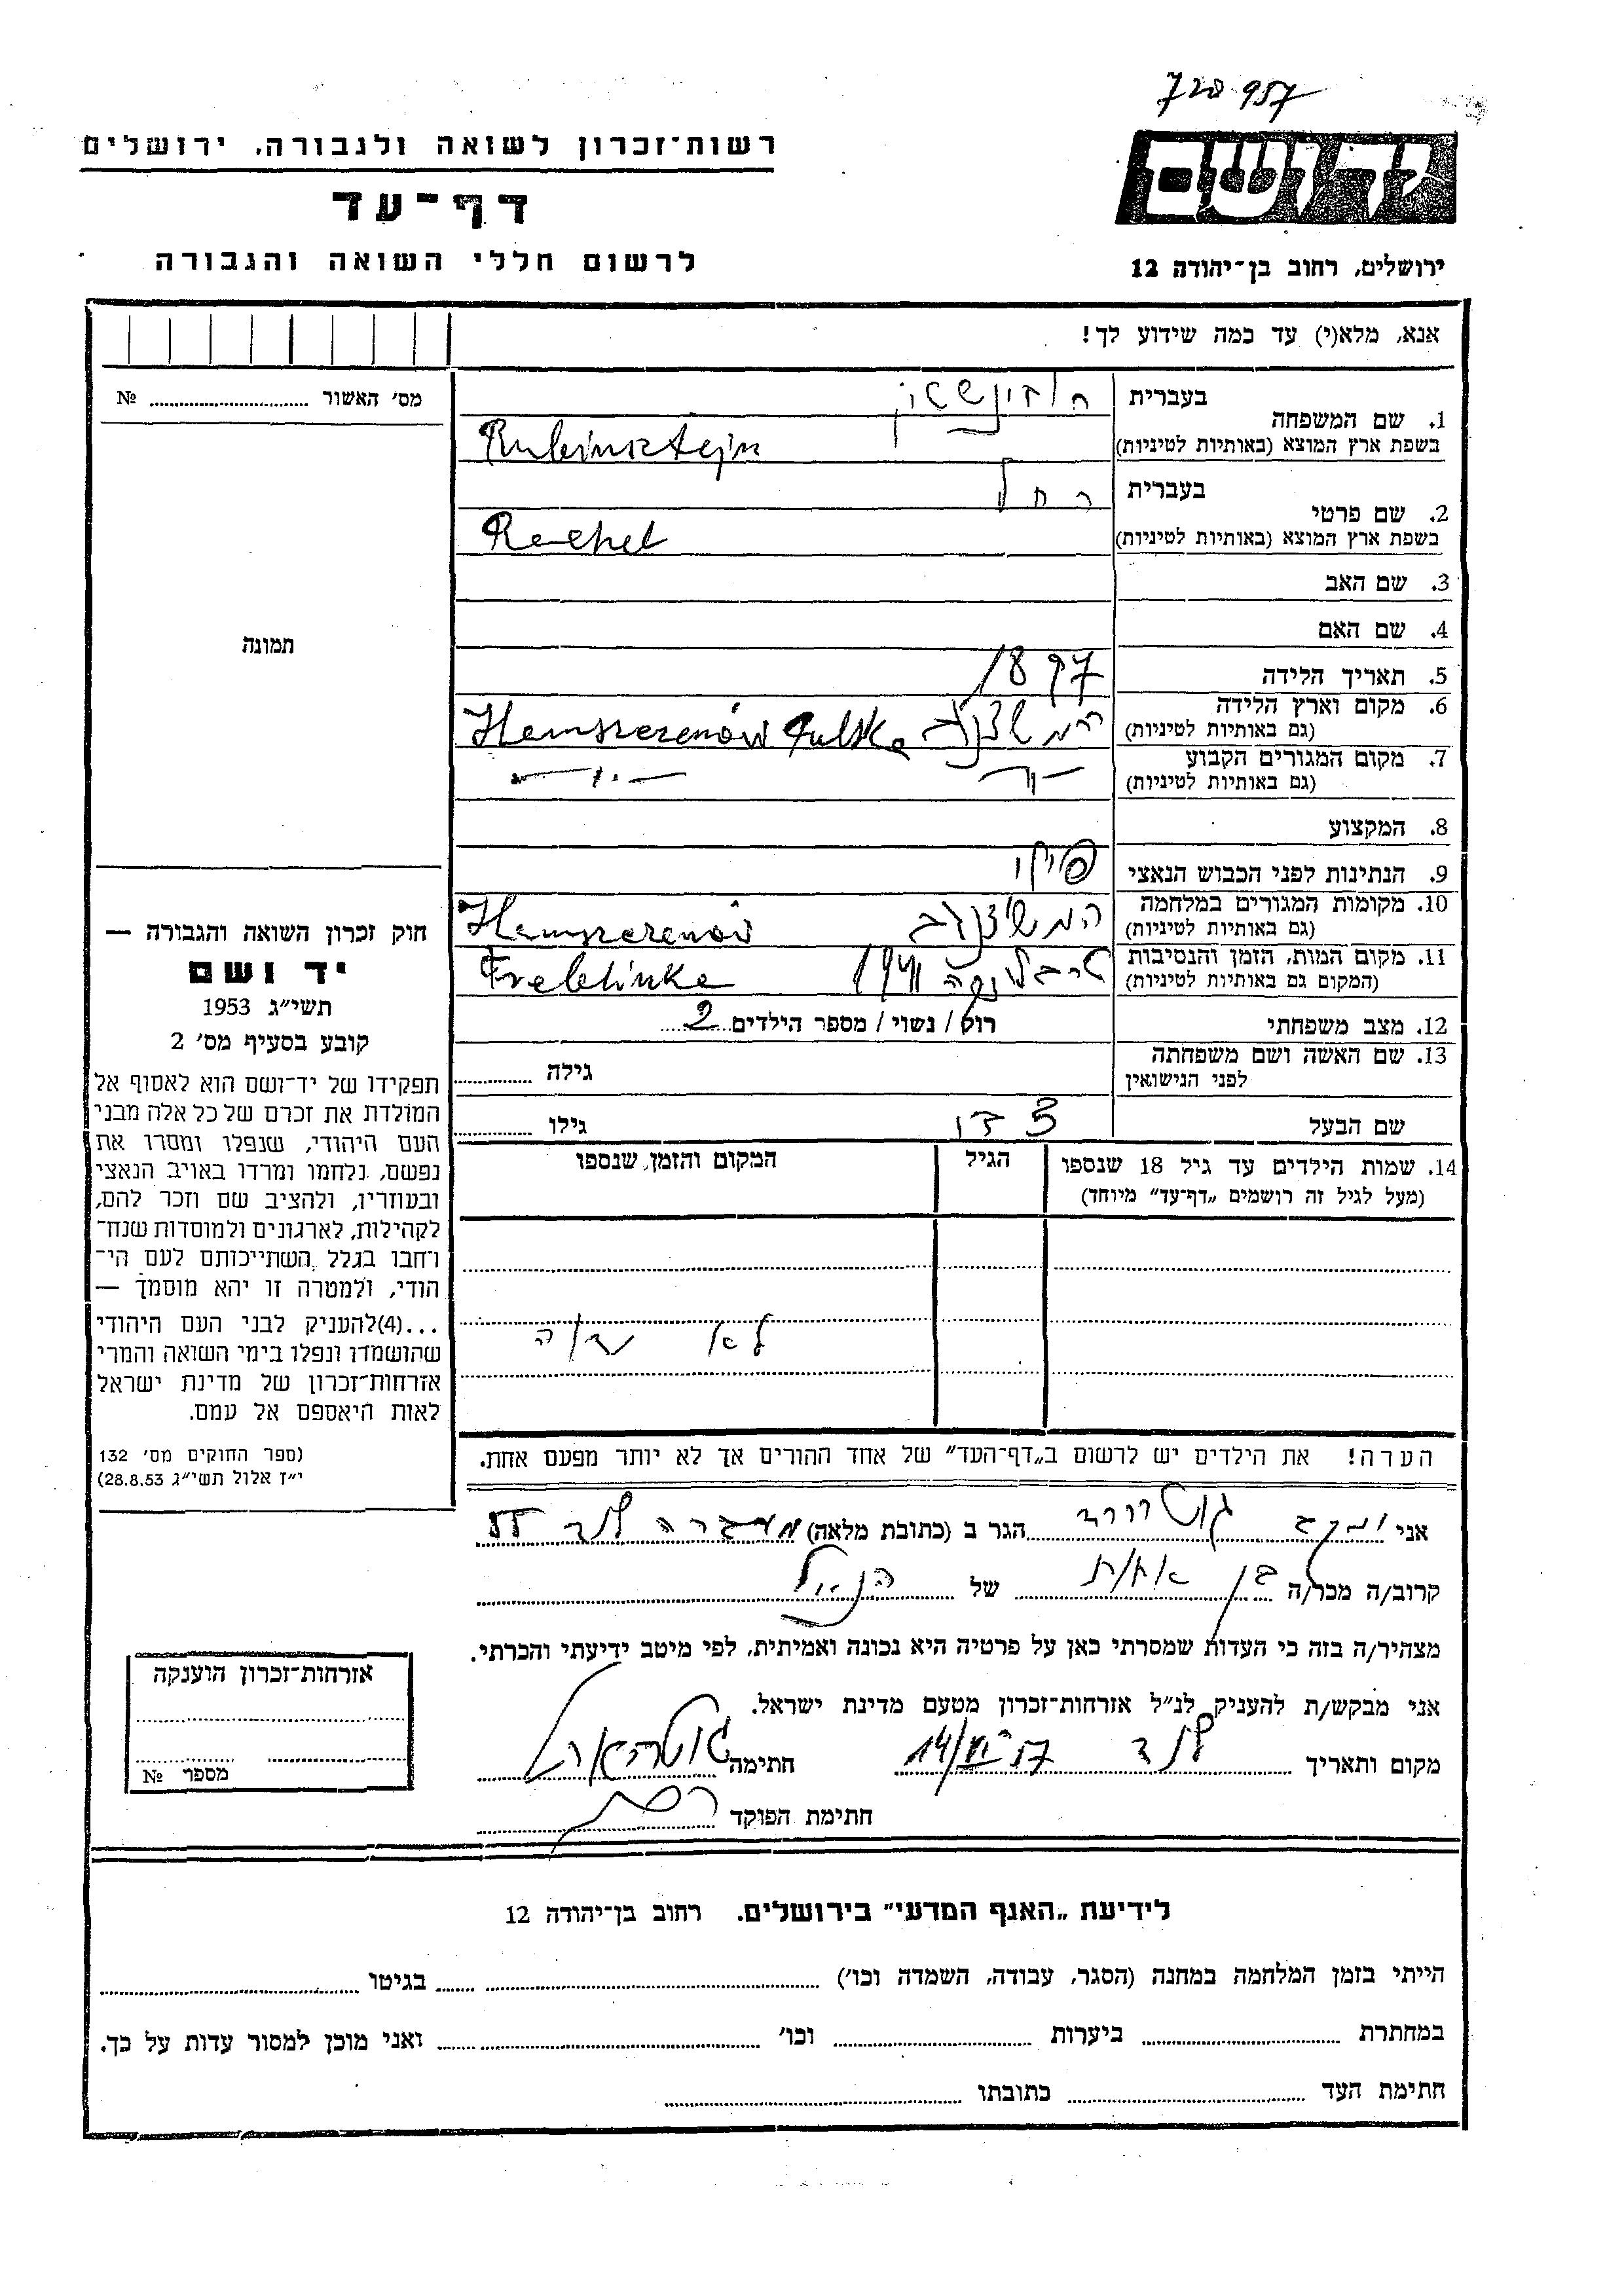 720957
רשות־זכרון לשואה ולגבורה, ירושלים
יד ושם
דף־עד
לרשום חללי השואה והגבורה
ירושלים, רחוב בן־יהודה 12
אנא, מלא(י) עד כמה שידוע לך!
מס' האשור № ....................
1. שם המשפחה
בעברית
בשפת ארץ המוצא (באותיות לטיניות) Rubinsztejn
2. שם פרטי
בעברית רחל
בשפת ארץ המוצא (באותיות לטיניות) Rachel
3. שם האב
4. שם האם
תמונה
5. תאריך הלידה 1897
6. מקום וארץ הלידה
(גם באותיות לטיניות)
7. מקום המגורים הקבוע
(גם באותיות לטיניות)
8. המקצוע
9. הנתינות לפני הכבוש הנאצי
10. מקומות המגורים במלחמה
(גם באותיות לטיניות)
11. מקום המות, הזמן והנסיבות 1941 Treblinka
(המקום גם באותיות לטיניות)
12. מצב משפחתי רוק / נשוי / מספר הילדים 2
13. שם האשה ושם משפחתה
לפני הנישואין
גילה
שם הבעל
גילו
14. שמות הילדים עד גיל 18 שנספו
(מעל לגיל זה רושמים „דף־עד” מיוחד)
הגיל
המקום והזמן, שנספו
לא
חוק זכרון השואה והגבורה —
יד ושם
תשי״ג 1953
קובע בסעיף מס' 2
תפקידו של יד־ושם הוא לאסוף אל
המולדת את זכרם של כל אלה מבני
העם היהודי, שנפלו ומסרו את
נפשם, נלחמו ומרדו באויב הנאצי
ובעוזריו, ולהציב שם וזכר להם,
לקהילות, לארגונים ולמוסדות שנח־
רחבו בגלל השתייכותם לעם הי־
הודי, ולמטרה זו יהא מוסמך —
...(4)להעניק לבני העם היהודי
שהושמדו ונפלו בימי השואה והמרי
אזרחות־זכרון של מדינת ישראל
לאות היאספם אל עמם.
(ספר החוקים מס' 132
י״ז אלול תשי״ג 28.8.53)
הערה! את הילדים יש לרשום ב„דף־העד” של אחד ההורים אך לא יותר מפעם אחת.
אני יעקב הגר ב (כתובת מלאה) מעברה לוד
קרוב/ה מכר/ה בן אחות של הנ״ל
מצהיר/ה בזה כי העדות שמסרתי כאן על פרטיה היא נכונה ואמיתית, לפי מיטב ידיעתי והכרתי.
אני מבקש/ת להעניק לנ״ל אזרחות־זכרון מטעם מדינת ישראל.
מקום ותאריך לוד חתימה
חתימת הפוקד
אזרחות־זכרון הוענקה
מספר №
לידיעת „האנף המדעי” בירושלים. רחוב בן־יהודה 12
הייתי בזמן המלחמה במחנה (הסגר, עבודה, השמדה וכו') בגיטו
במחתרת ביערות וכו' ואני מוכן למסור עדות על כך.
חתימת העד כתובתו